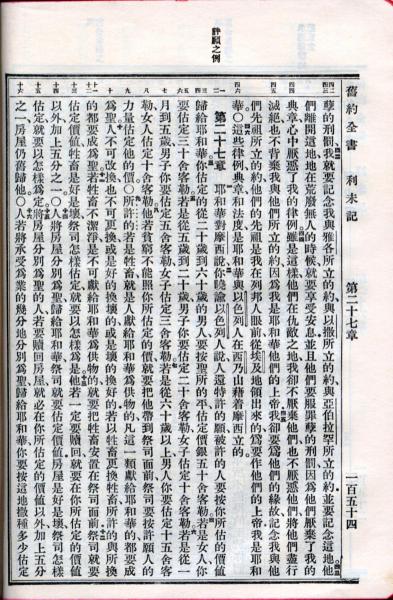 舊約全書 利未記 第二十七章 一百五十四
孽的刑罰我就要記念我與雅各所立的約與以撒所立的約與亞伯拉罕所立的約並要記念這地他
們離開這地地在荒廢無人的時候就要享受安息並且他們要服罪孽的刑罰因爲他們厭棄了我的
典章心中厭惡了我的律例雖是這樣他們在仇敵之地我卻不厭棄他們也不厭惡他們將他們盡行
滅絕也不背棄我與他們所立的約因爲我是耶和華他們的上帝我卻要爲他們的緣故記念我與他
們先祖所立的約他們的先祖是我在列邦人眼前從埃及地領出來的爲要作他們的上帝我是耶和
華○這些律例典章和法度是耶和華與以色列人在西乃山藉着摩西立的
第二十七章 耶和華對摩西說你曉諭以色列人說人還特許的願被許的人要按你所估的價值
歸給耶和華你估定的從二十歲到六十歲的男人要按聖所的平估定價銀五十舍客勒若是女人你
要估定三十舍客勒若是從五歲到二十歲男子你要估定二十舍客勒女子估定十舍客勒若是從一
月到五歲男子你要估定五舍客勒女子估定三舍客勒若是從六十歲以上男人你要估定十五舍客
勒女人估定十舍客勒他若貧窮不能照你所估定的價就要把他帶到祭司面前祭司要按許願人的
力量估定他的價○所許的若是牲畜就是人獻給耶和華爲供物的凡這一類獻給耶和華的都要成
爲聖人不可改換也不可更換或是好的換壞的或是壞的換好的若以牲畜更換牲畜所許的與所換
的都要成爲聖若牲畜不潔淨是不可獻給耶和華爲供物的就要把牲畜安置在祭司面前祭司就要
估定價值牲畜是好是壞祭司怎樣估定就要以怎樣爲是他若一定要贖回就要在你所估定的價值
以外加上五分之一○人將房屋分別爲聖歸給耶和華祭司就要估定價值房屋是好是壞祭司怎樣
估定就要以怎樣爲定將房屋分別爲聖的人若要贖回房屋就必在你所估定的價值以外加上五分
之一房屋仍舊歸他○人若將承受爲業的幾分地分別爲聖歸給耶和華你要按這地撒種多少估定
許願之例